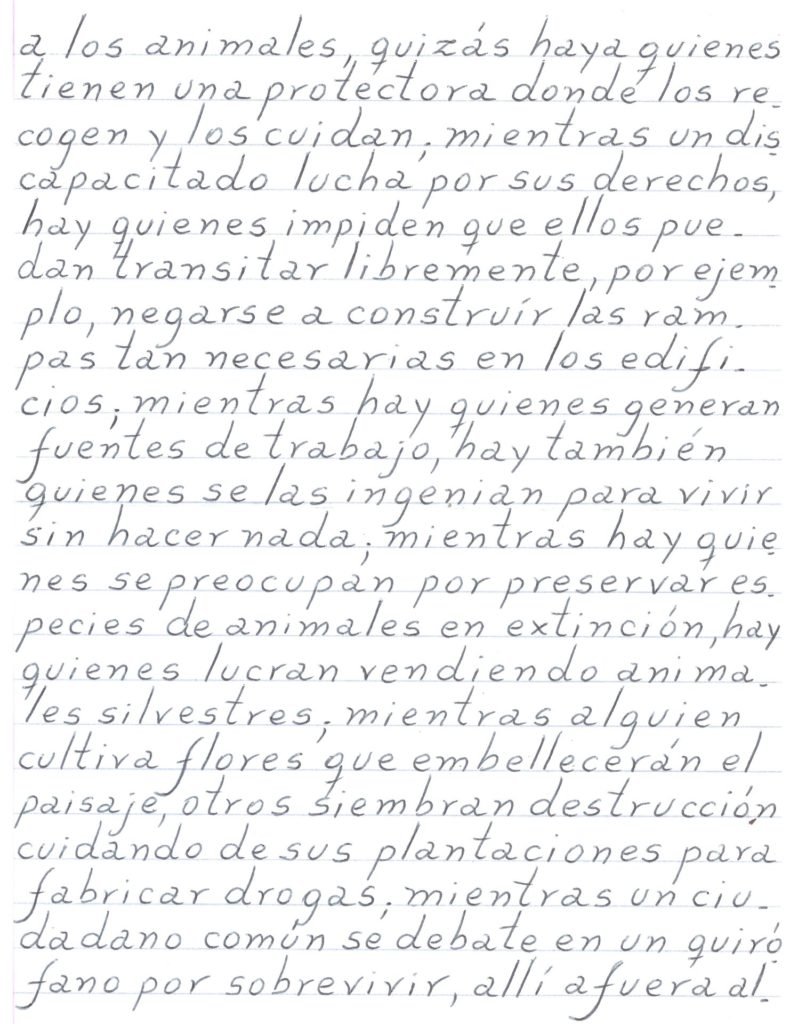 a los animales, quizás haya quienes
tienen una protectora donde los re-
cogen y los cuidan; mientras un dis
capacitado lucha por sus derechos,
hay quienes impiden que ellos pue-
dan transitar libremente, por ejem
plo, negarse a construír las ram-
pas tan necesarias en los edifi-
cios; mientras hay quienes generan
fuentes de trabajo, hay también
quienes se las ingenian para vivir
sin hacer nada; mientras hay quie
nes se preocupan por preservar es-
pecies de animales en extinción, hay
quienes lucran vendiendo anima-
les silvestres; mientras alguien
cultiva flores que embellecerán el
paisaje, otros siembran destrucción
cuidando de sus plantaciones para
fabricar drogas; mientras un ciu-
dadano común se debate en un quiró
fano por sobrevivir, allí afuera al-